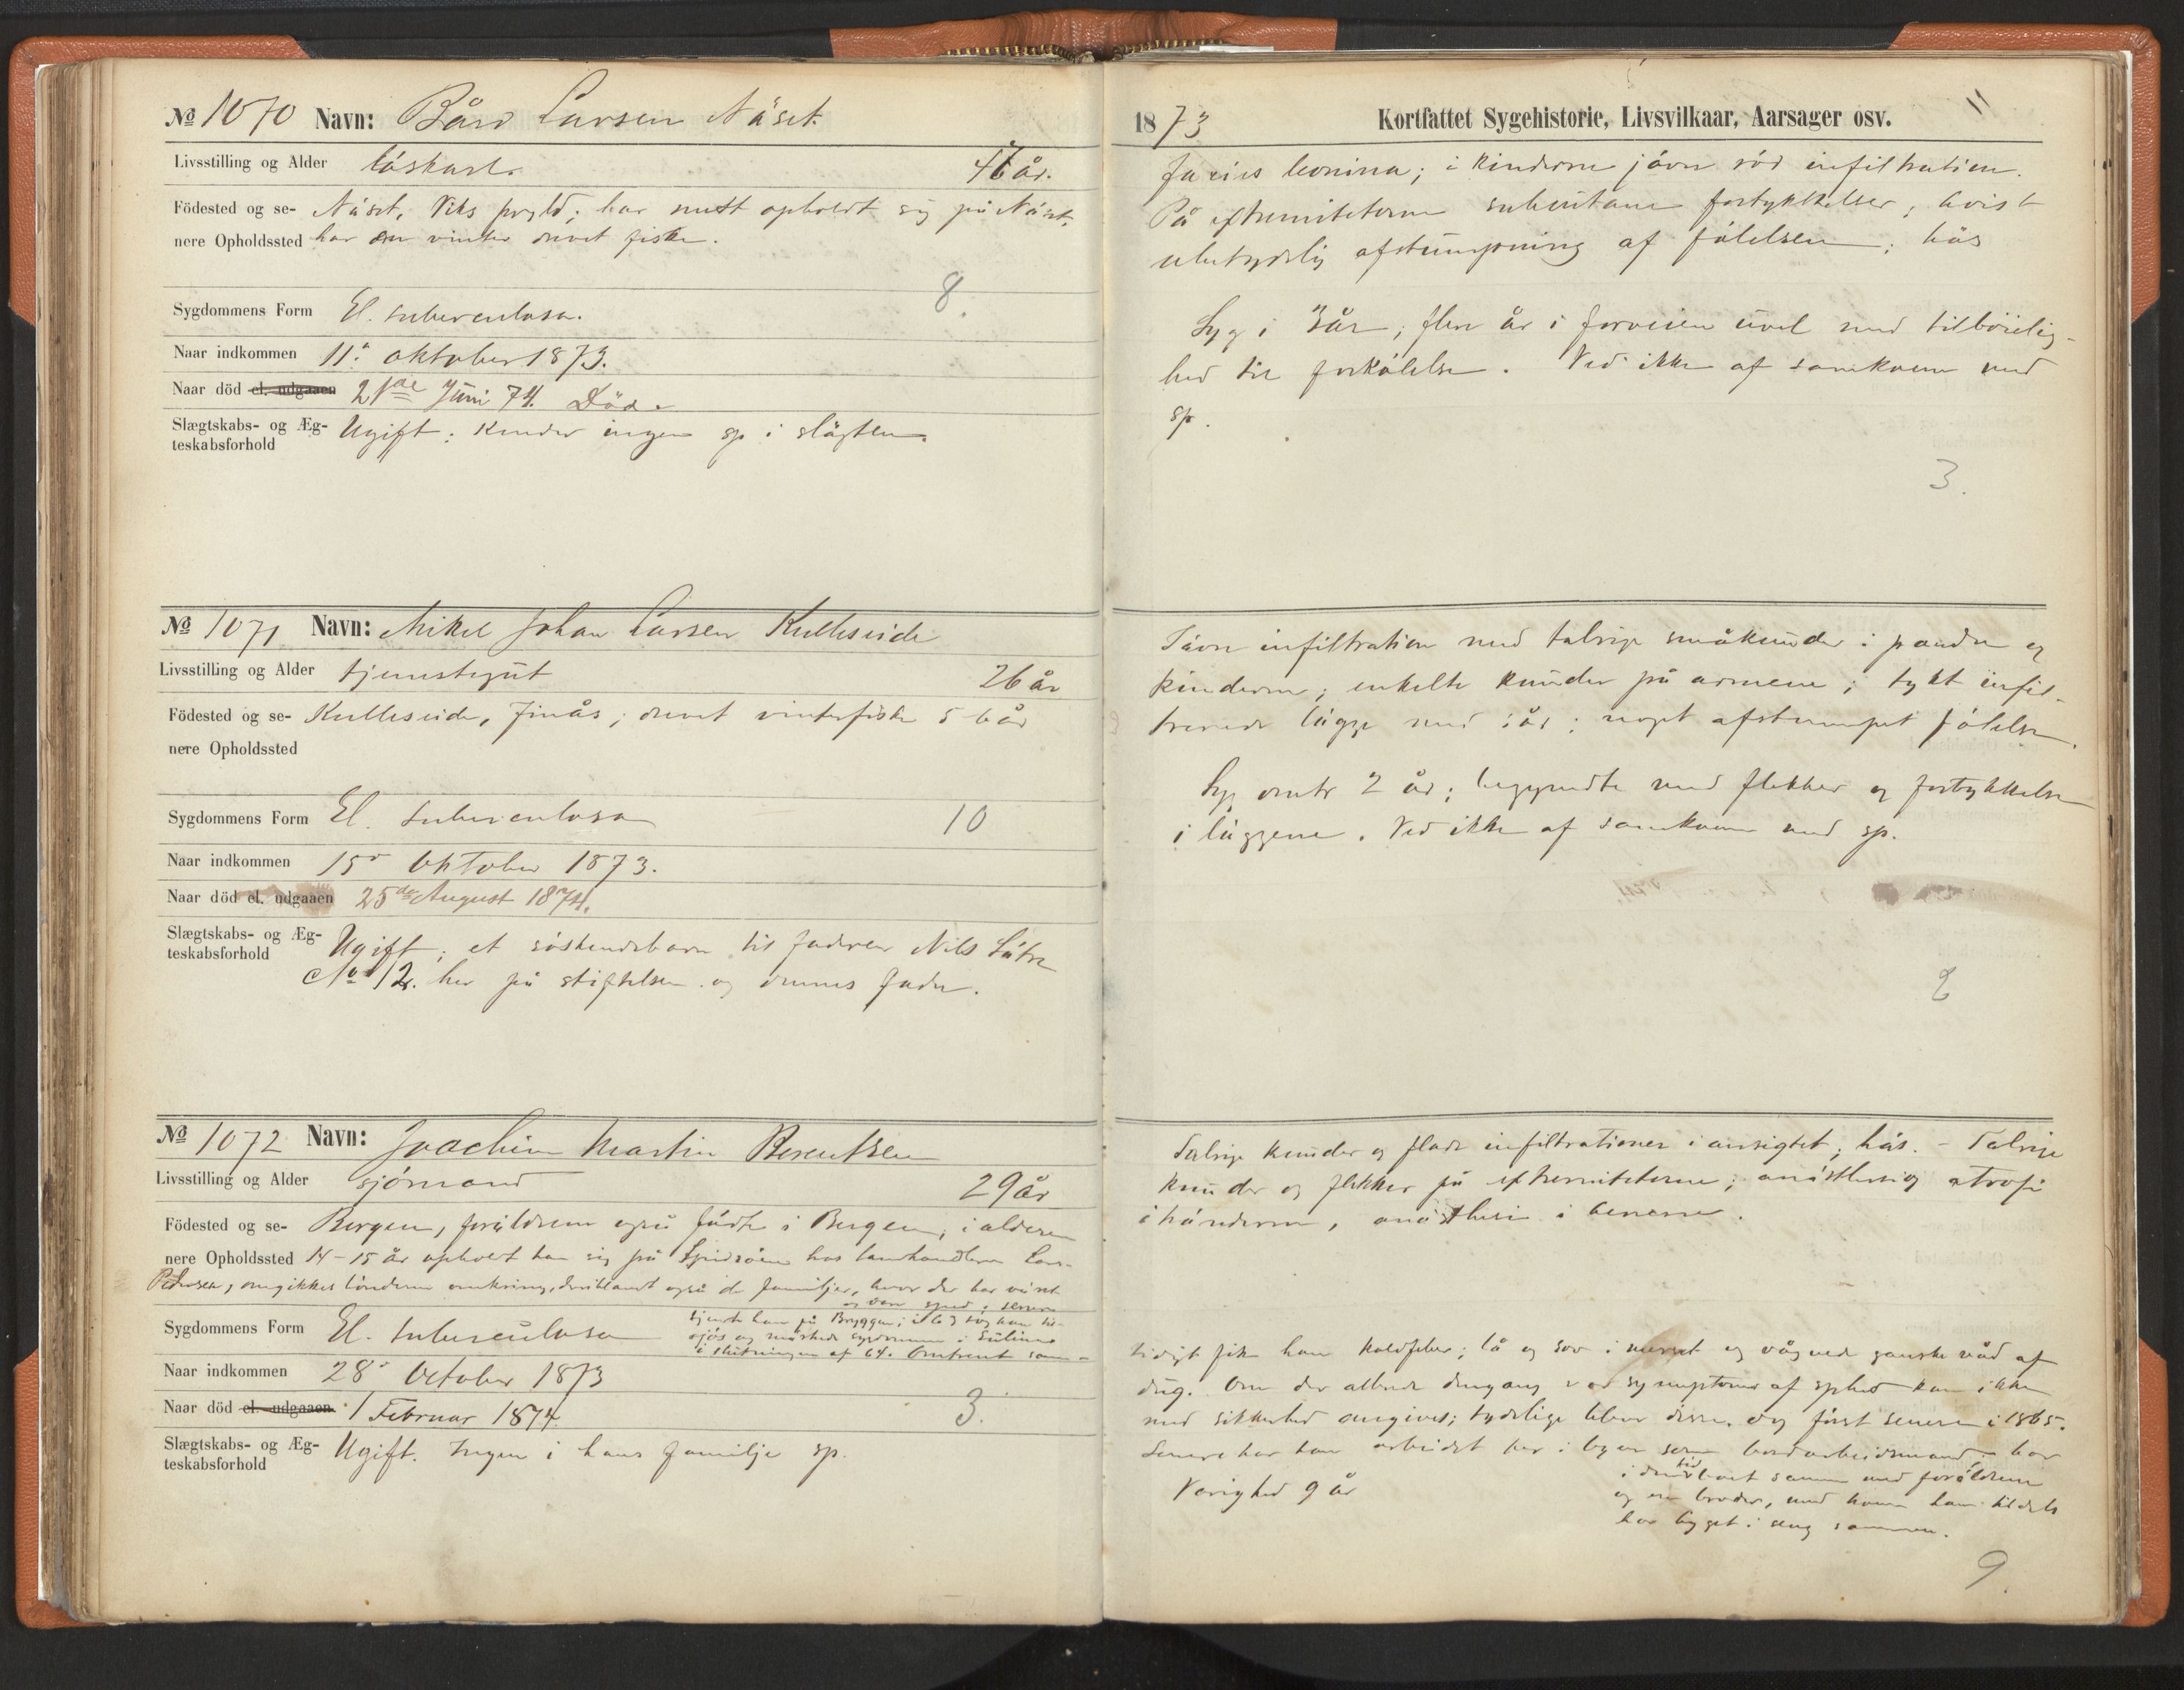 № 1070 Navn: Bård Larsen Näset.
Livsstilling og Alder löskarl. 46 år.
Födested og se- Näset, Viks prgld; har mest opholdt sig på Näset,
nere Opholdssted har en vinter drevet fiske.
8.
Sygdommens Form El. tuberculosa.
Naar indkommen 11. oktober 1873.
Naar död el. udgaaen 21de Juni 74. Död.
Slægtskabs- og Æg-
teskabsforhold Ugift; kender ingen sp. i slägten.
№ 1071 Navn: Mikel Johan Larsen Kulleseide
Livsstilling og Alder tjenestegut 26 år
Födested og se- Kulleseide, Finås; drevet vinterfiske 5 6 år
nere Opholdssted
Sygdommens Form El. tuberculosa 10
Naar indkommen 15. Oktober 1873.
Naar död el. udgaaen 25de August 1874.
Slægtskabs- og Æg-
teskabsforhold Ugift; et söskendebarn til faderen Nils Sätre
No 12. her på stiftelsen og dennes fader.
№ 1072 Navn: Joachim Martin Berentsen
Livsstilling og Alder sjömand 29 år
Födested og se- Bergen, foräldrene også födte i Bergen; i alderen
nere Opholdssted 14-15 år opholdt han sig på hos landhandleren Lars
Pedersen, omgikkes bönderne omkring, deriblandt også de familjer, hvor der har väret
og var sped; senere
tjente han på Bryggen; i 63 tog han til-
sjös og märkede sygdommen i Sulina
i slutningen af 64. Omtrent sam-
Sygdommens Form El. tuberculosa
Naar indkommen 28. October 1873
Naar död el. udgaaen 1 Februar 1874. 3.
Slægtskabs- og Æg-
teskabsforhold Ugift. Ingen i hans familje sp.
1873 Kortfattet Sygehistorie, Livsvilkaar, Aarsager osv. 11
Facies leonina; i kinderne jävn röd infiltration.
På extremiteterne subcutane fortykkelser, hvist
ubetydelig afstumpning af fölelsen; hås
Syg i 3 år; flere år i forveien uvel med tilböielig-
hed til forkölelse. Ved ikke af samkvem med
sp.
3.
Jävn infiltration med talrige småknuder i panden og
kinderne; enkelte knuder på armene; tykt infil-
trerede lägge med sår; noget afstumpet fölelse.
Syg omtr 2 år; begyndte med flekker og fortykkelse
i läggene. Ved ikke af samkvem med sp.
2
Talrige knuder og flade infiltrationer i ansigtet; hås. - Talrige
knuder og flekker på extremiteterne; anästhesi og atrofi
i händerne, anästhesi i benene.
tidigt fik han koldfeber; lå og sov i merset og vågnede ganske våd af
dug. Om der allerede dengang var symptomer af sphed kan ikke
med sikkerhed angives; tydelige blev disse dog först senere i 1865.
Senere har han arbeidet her i byen som bordarbeidsmand; har
i den tid boet sammen med foräldrene
og en broder, med hvem han tildels
har ligget i seng sammen.
Varighed 9 år
9.